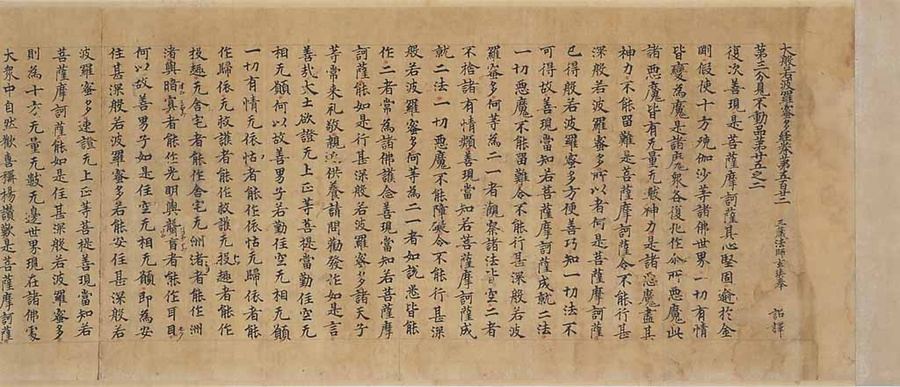 大般若波羅蜜多經卷第五百廿二 三藏法師玄奘奉 詔譯
第三分見不動品第廿五之二
復次善現是菩薩摩訶薩其心堅固逾於金
剛假使十方殑伽沙等諸佛世界一切有情
皆變為魔是諸魔衆各復化作尒所惡魔此
諸惡魔皆有无量无數神力是諸惡魔盡其
神力不能留難是菩薩摩訶薩令不能行甚
深般若波羅蜜多所以者何是菩薩摩訶薩
已得般若波羅蜜多方便善巧知一切法不
可得故善現當知若菩薩摩訶薩成就二法
一切惡魔不能留難令不能行甚深般若波
羅蜜多何等為二一者觀察諸法皆空二者
不捨諸有情類善現當知若菩薩摩訶薩成
就二法一切惡魔不能障礙令不能行甚深
般若波羅蜜多何等為二一者如說悉皆能
作二者常為諸佛護念善現當知若菩薩摩
訶薩能如是行甚深般若波羅蜜多諸天子
等常來礼敬親近供養請問勸發作如是言
善哉大士欲證无上正等菩提當勤住空无
相无願何以故善男子若勤住空无相无願
一切有情无依怙者能作依怙无歸依者能
作歸依无救護者能作救護无投趣者能作
投趣无舍宅者能作舍宅无洲渚者能作洲
渚與暗冥者能作光明與聾盲者能作耳目
何以故善男子如是住空无相无願即為安
住甚深般若波羅蜜多若能安住甚深般若
波羅蜜多速證无上正等菩提善現當知若
菩薩摩訶薩能如是住甚深般若波羅蜜多
則為十方无量无數无邊世界現在諸佛處
大衆中自然歡喜稱揚讚歎是菩薩摩訶薩